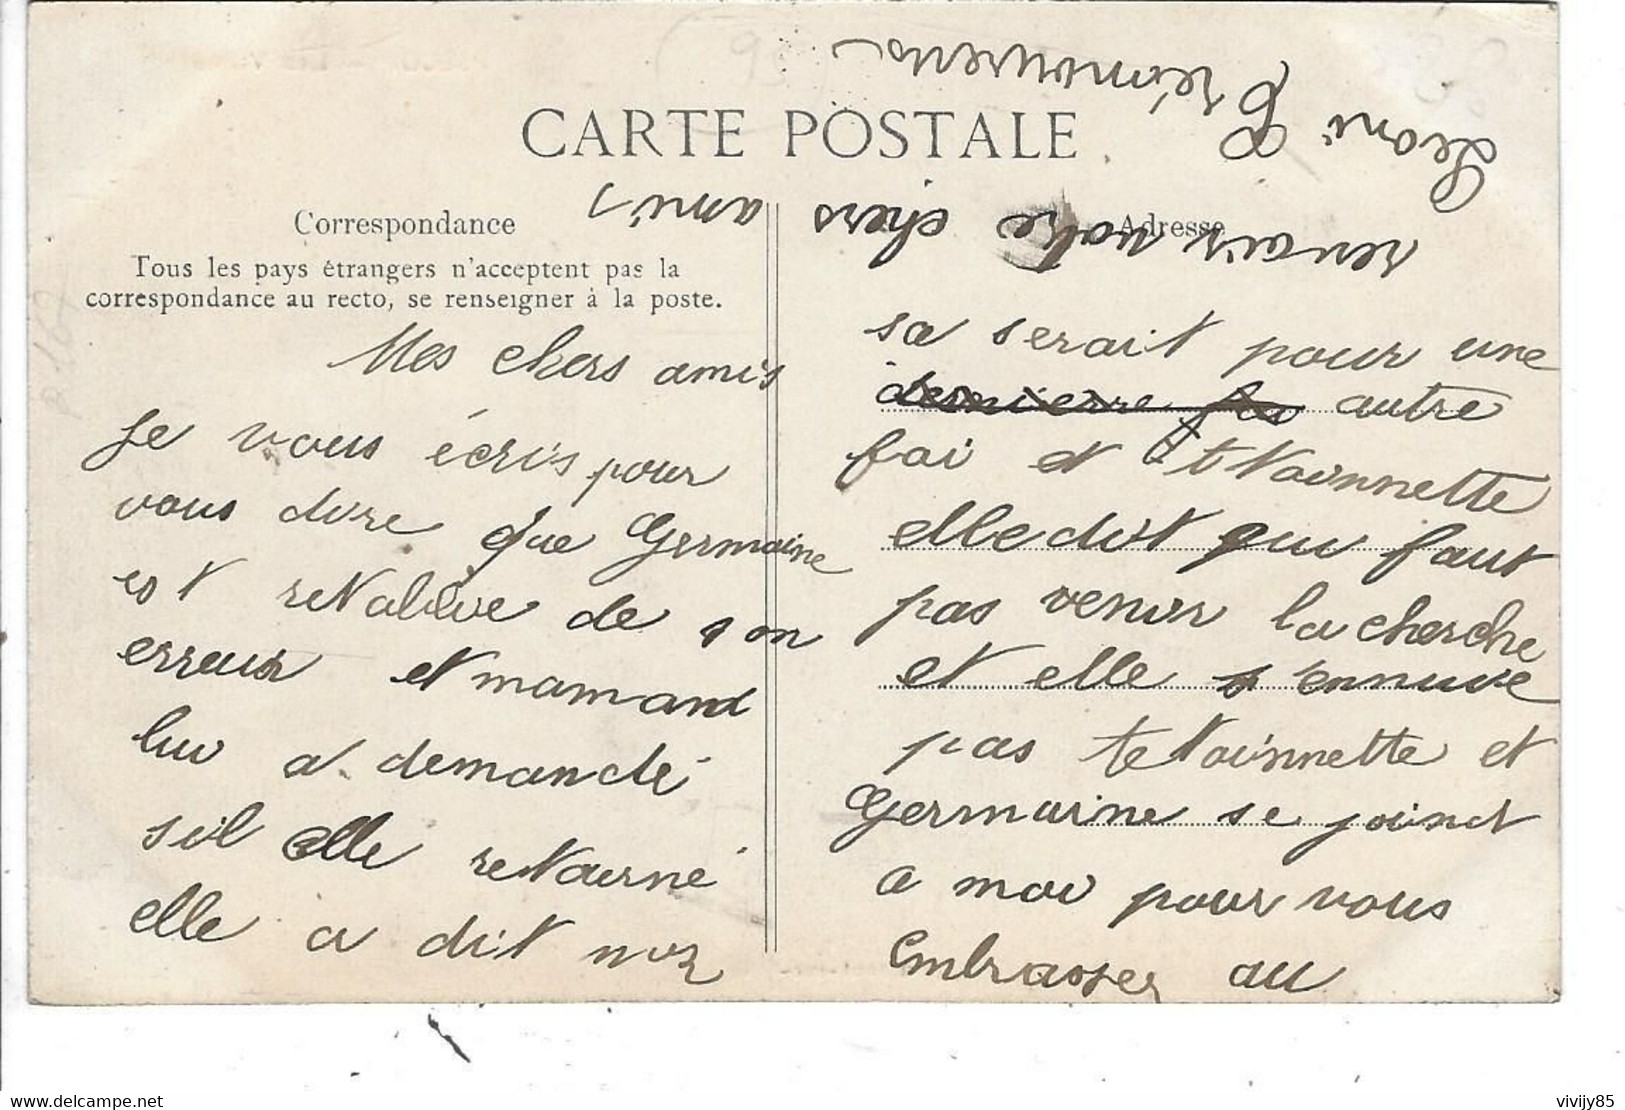 CARTE POSTALE
Correspondance
Tous les pays étrangers n'acceptent pas la
correspondance au recto, se renseigner à la poste.
Adresse
Mes chers amis
Je vous écris pour
vous dire que Germaine
est de son
erreur et mamant
lui a demandé
sil elle retourné
elle a dit
sa serait pour une
dernierre foi autre
foi et
elle dit qui faut
pas venir la cherche
et elle s'ennuie
pas et
Germaine se joint
a moi pour vous
Embrasser au
revoir votre chers
amis
Leoni
vivijy85